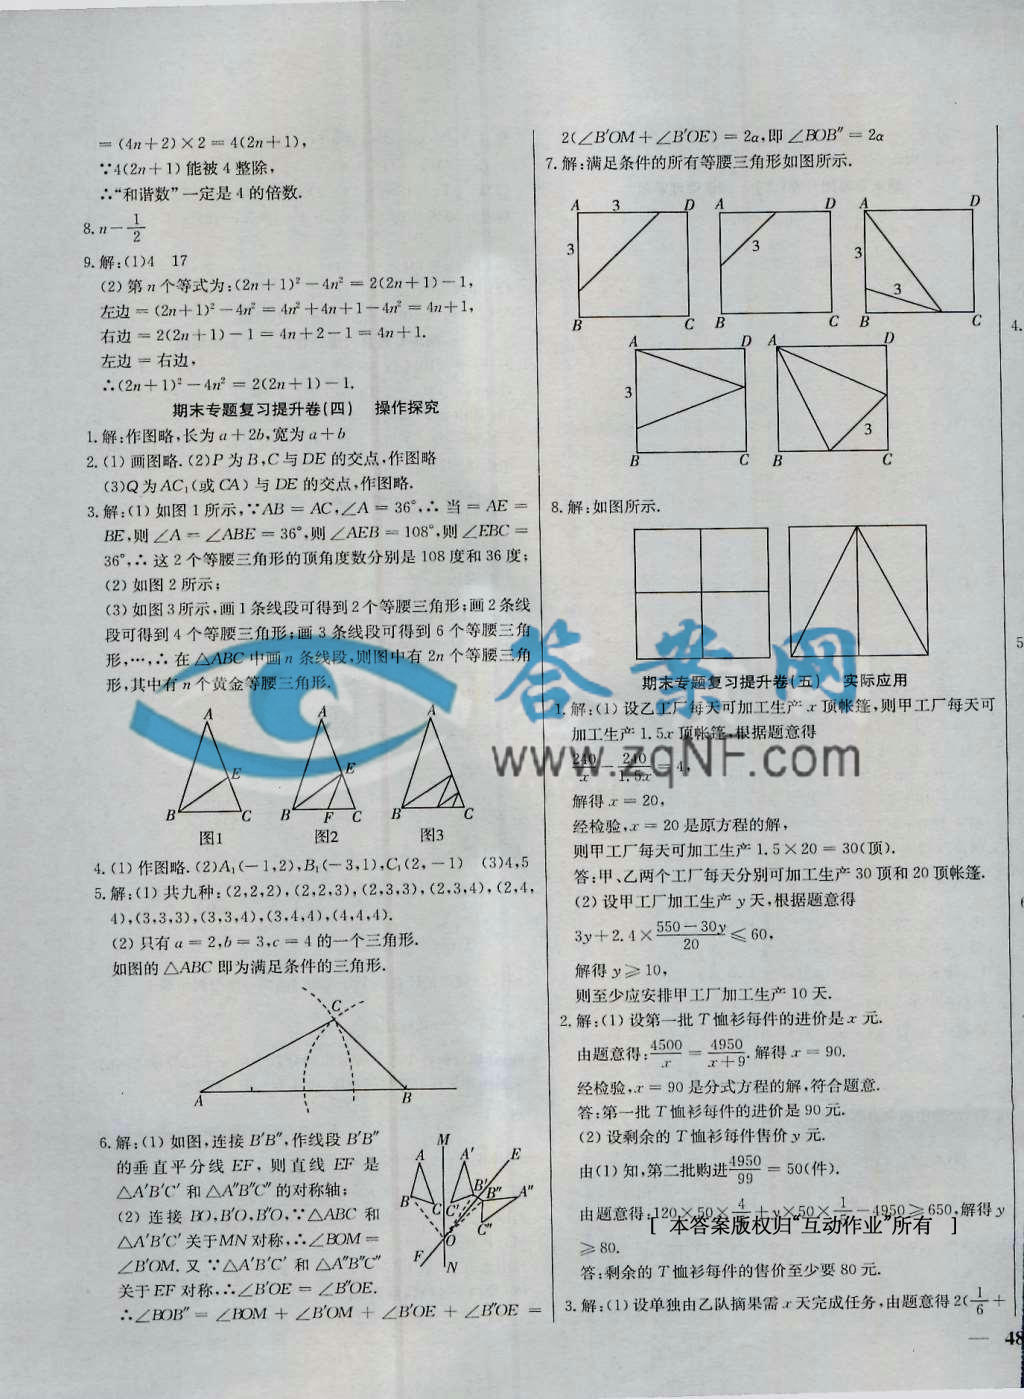 =(4n+2)×2=4(2n+1),
∵4(2n+1)能被4整除,
∴“和谐数”一定是4的倍数.
8. n-1/2
9.解:(1)4 17
(2)第n个等式为:(2n+1)²-4n²=2(2n+1)-1,
左边=(2n+1)²-4n²=4n²+4n+1-4n²=4n+1,
右边=2(2n+1)-1=4n+2-1=4n+1.
左边=右边,
∴(2n+1)²-4n²=2(2n+1)-1.
期末专题复习提升卷(四) 操作探究
1.解:作图略,长为a+2b,宽为a+b
2.(1)画图略.(2)P为B,C与DE的交点,作图略
(3)Q为AC₁(或CA)与DE的交点,作图略.
3.解:(1)如图1所示,∵AB=AC,∠A=36°,∴当=AE=
BE,则∠A=∠ABE=36°,则∠AEB=108°,则∠EBC=
36°,∴这2个等腰三角形的顶角度数分别是108度和36度;
(2)如图2所示;
(3)如图3所示,画1条线段可得到2个等腰三角形;画2条线
段可得到4个等腰三角形;画3条线段可得到6个等腰三角
形,…,∴在△ABC中画n条线段,则图中有2n个等腰三角
形,其中有n个黄金等腰三角形.
A A A
E E
B C B F C B C
图1 图2 图3
4.(1)作图略.(2)A₁(-1,2),B₁(-3,1),C₁(2,-1) (3)4,5
5.解:(1)共九种:(2,2,2),(2,2,3),(2,3,3),(2,3,4),(2,4,
4),(3,3,3),(3,3,4),(3,4,4),(4,4,4).
(2)只有a=2,b=3,c=4的一个三角形.
如图的△ABC即为满足条件的三角形.
C
A B
6.解:(1)如图,连接B′B″,作线段B′B″
的垂直平分线EF,则直线EF是
△A′B′C′和△A″B″C″的对称轴;
(2)连接BO,B′O,B″O,∵△ABC和
△A′B′C′关于MN对称,∴∠BOM=
∠B′OM.又∵△A′B′C′和△A″B″C″
关于EF对称,∴∠B′OE=∠B″OE.
∴∠BOB″=∠BOM+∠B′OM+∠B′OE+∠B″OE=
M
A A′ E
B C C′ B′ B″ A″
C″
O
F N
2(∠B′OM+∠B′OE)=2α,即∠BOB″=2α
7.解:满足条件的所有等腰三角形如图所示.
A 3 D A D A D
3 3 3 3
B C B C B C
A D A D
3 3
B C B C
8.解:如图所示.
期末专题复习提升卷(五) 实际应用
1.解:(1)设乙工厂每天可加工生产x顶帐篷,则甲工厂每天可
加工生产1.5x顶帐篷,根据题意得
240/x-240/1.5x=4,
解得x=20,
经检验,x=20是原方程的解,
则甲工厂每天可加工生产1.5×20=30(顶).
答:甲、乙两个工厂每天分别可加工生产30顶和20顶帐篷.
(2)设甲工厂加工生产y天,根据题意得
3y+2.4×(550-30y)/20≤60,
解得y≥10,
则至少应安排甲工厂加工生产10天.
2.解:(1)设第一批T恤衫每件的进价是x元.
由题意得:4500/x=4950/(x+9).解得x=90.
经检验,x=90是分式方程的解,符合题意.
答:第一批T恤衫每件的进价是90元.
(2)设剩余的T恤衫每件售价y元.
由(1)知,第二批购进4950/99=50(件).
由题意得:120×50×4/5+y×50×1/5-4950≥650,解得y
≥80.
答:剩余的T恤衫每件的售价至少要80元.
3.解:(1)设单独由乙队摘果需x天完成任务,由题意得2(1/6+
4.
5
48
答案网
www.zqNF.com
[ 本答案版权归“互动作业”所有 ]